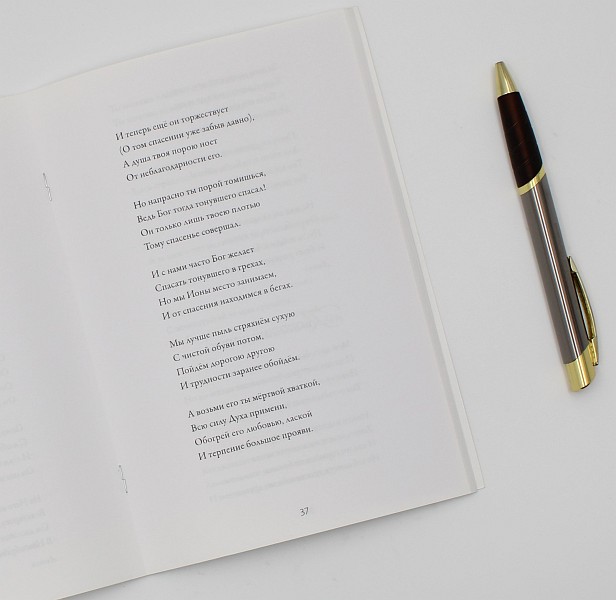 И теперь ещё он торжествует
(О том спасении уже забыв давно),
А душа твоя порою ноет
От неблагодарности его.
Но напрасно ты порой томишься,
Ведь Бог тогда тонувшего спасал!
Он только лишь твоею плотью
Тому спасенье совершал.
И с нами часто Бог желает
Спасать тонувшего в грехах,
Но мы Ионы место занимаем,
И от спасения находимся в бегах.
Мы лучше пыль стряхнём сухую
С чистой обуви потом,
Пойдём дорогою другою
И трудности заранее обойдём.
А возьми его ты мёртвой хваткой,
Всю силу Духа примени,
Обогрей его любовью, лаской
И терпение большое прояви.
37